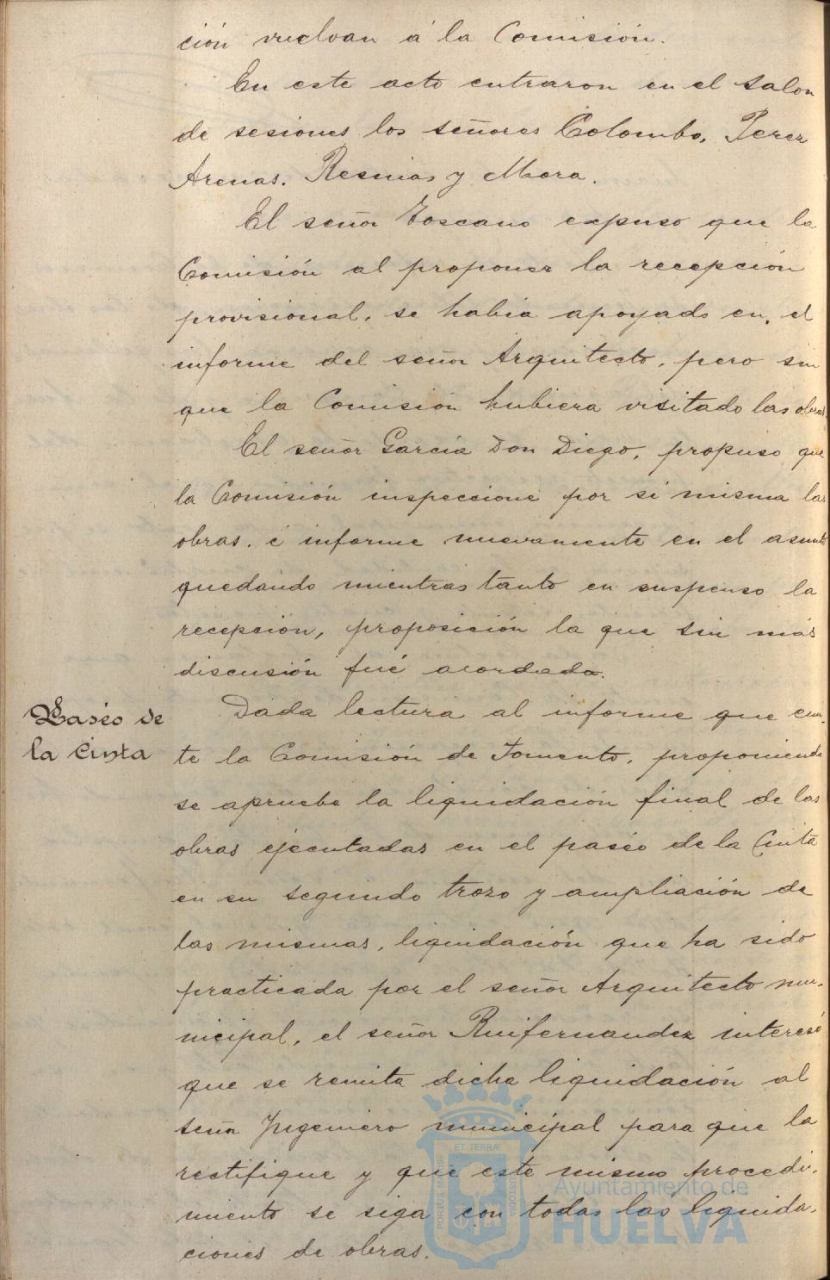 ción vuelvan á la Comisión.
En este acto entraron en el salon
de sesiones los señores Colombo, Perez
Arenas. Resmas y Mora.
El señor Toscano expuso que la
Comisión al proponer la recepción
provisional, se habia apoyado en, el
informe del señor Arquitecto, pero sin
que la Comisión hubiera visitado las obras.
El señor García Don Diego, propuso que
la Comisión inspeccione por si misma las
obras. é informe nuevamente en el asunto
quedando mientras tanto en suspenso la
recepción, proposición la que sin más
discusión fué acordada.
Paséo de
la Cinta
Dada lectura al informe que emi-
te la Comisión de Fomento, proponiendo
se apruebe la liquidación final de las
obras ejecutadas en el paséo de la Cinta
en su segundo trozo y ampliación de
las mismas, liquidación que ha sido
practicada por el señor Arquitecto mu-
nicipal, el señor Ruifernandez interesó
que se remita dicha liquidación al
señor Ingeniero municipal para que la
rectifique y que este mismo procedi-
miento se siga con todas las liquida-
ciones de obras.
Ayuntamiento de
HUELVA